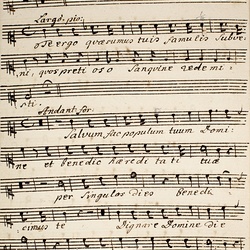 Largo. pio:
Te ergo quæsumus tuis famulis subve-
ni, quos pretioso Sanguine redemi-
sti.
Andant. for.
Salvum fac populum tuum Domi-
ne et benedic hæreditati tuæ
per singulos dies benedi-
cimus te Dignare Domine die